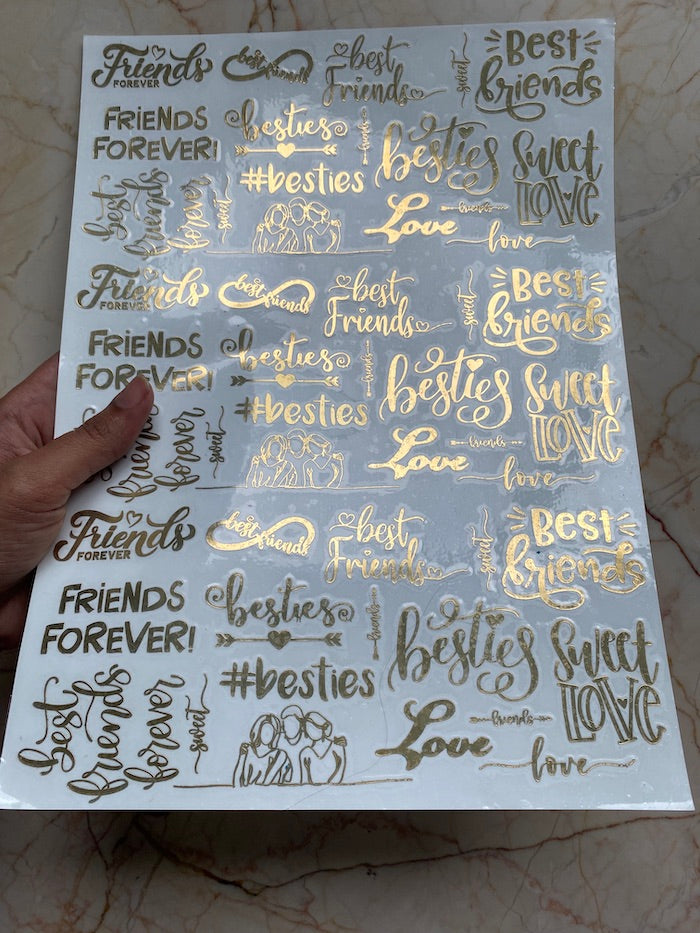 Friends
FOREVER
best friends
best
Friends
sweet
Best
friends
FRIENDS
FOREVER!
besties
friends
besties
Sweet
LOVE
best
friends
forever
sweet
#besties
Love
friends
love
Friends
FOREVER
best friends
best
Friends
sweet
Best
friends
FRIENDS
FOREVER!
besties
friends
besties
Sweet
LOVE
friends
forever
sweet
#besties
Love
friends
love
Friends
FOREVER
best friends
best
Friends
sweet
Best
friends
FRIENDS
FOREVER!
besties
friends
besties
Sweet
LOVE
best
friends
forever
sweet
#besties
Love
friends
love